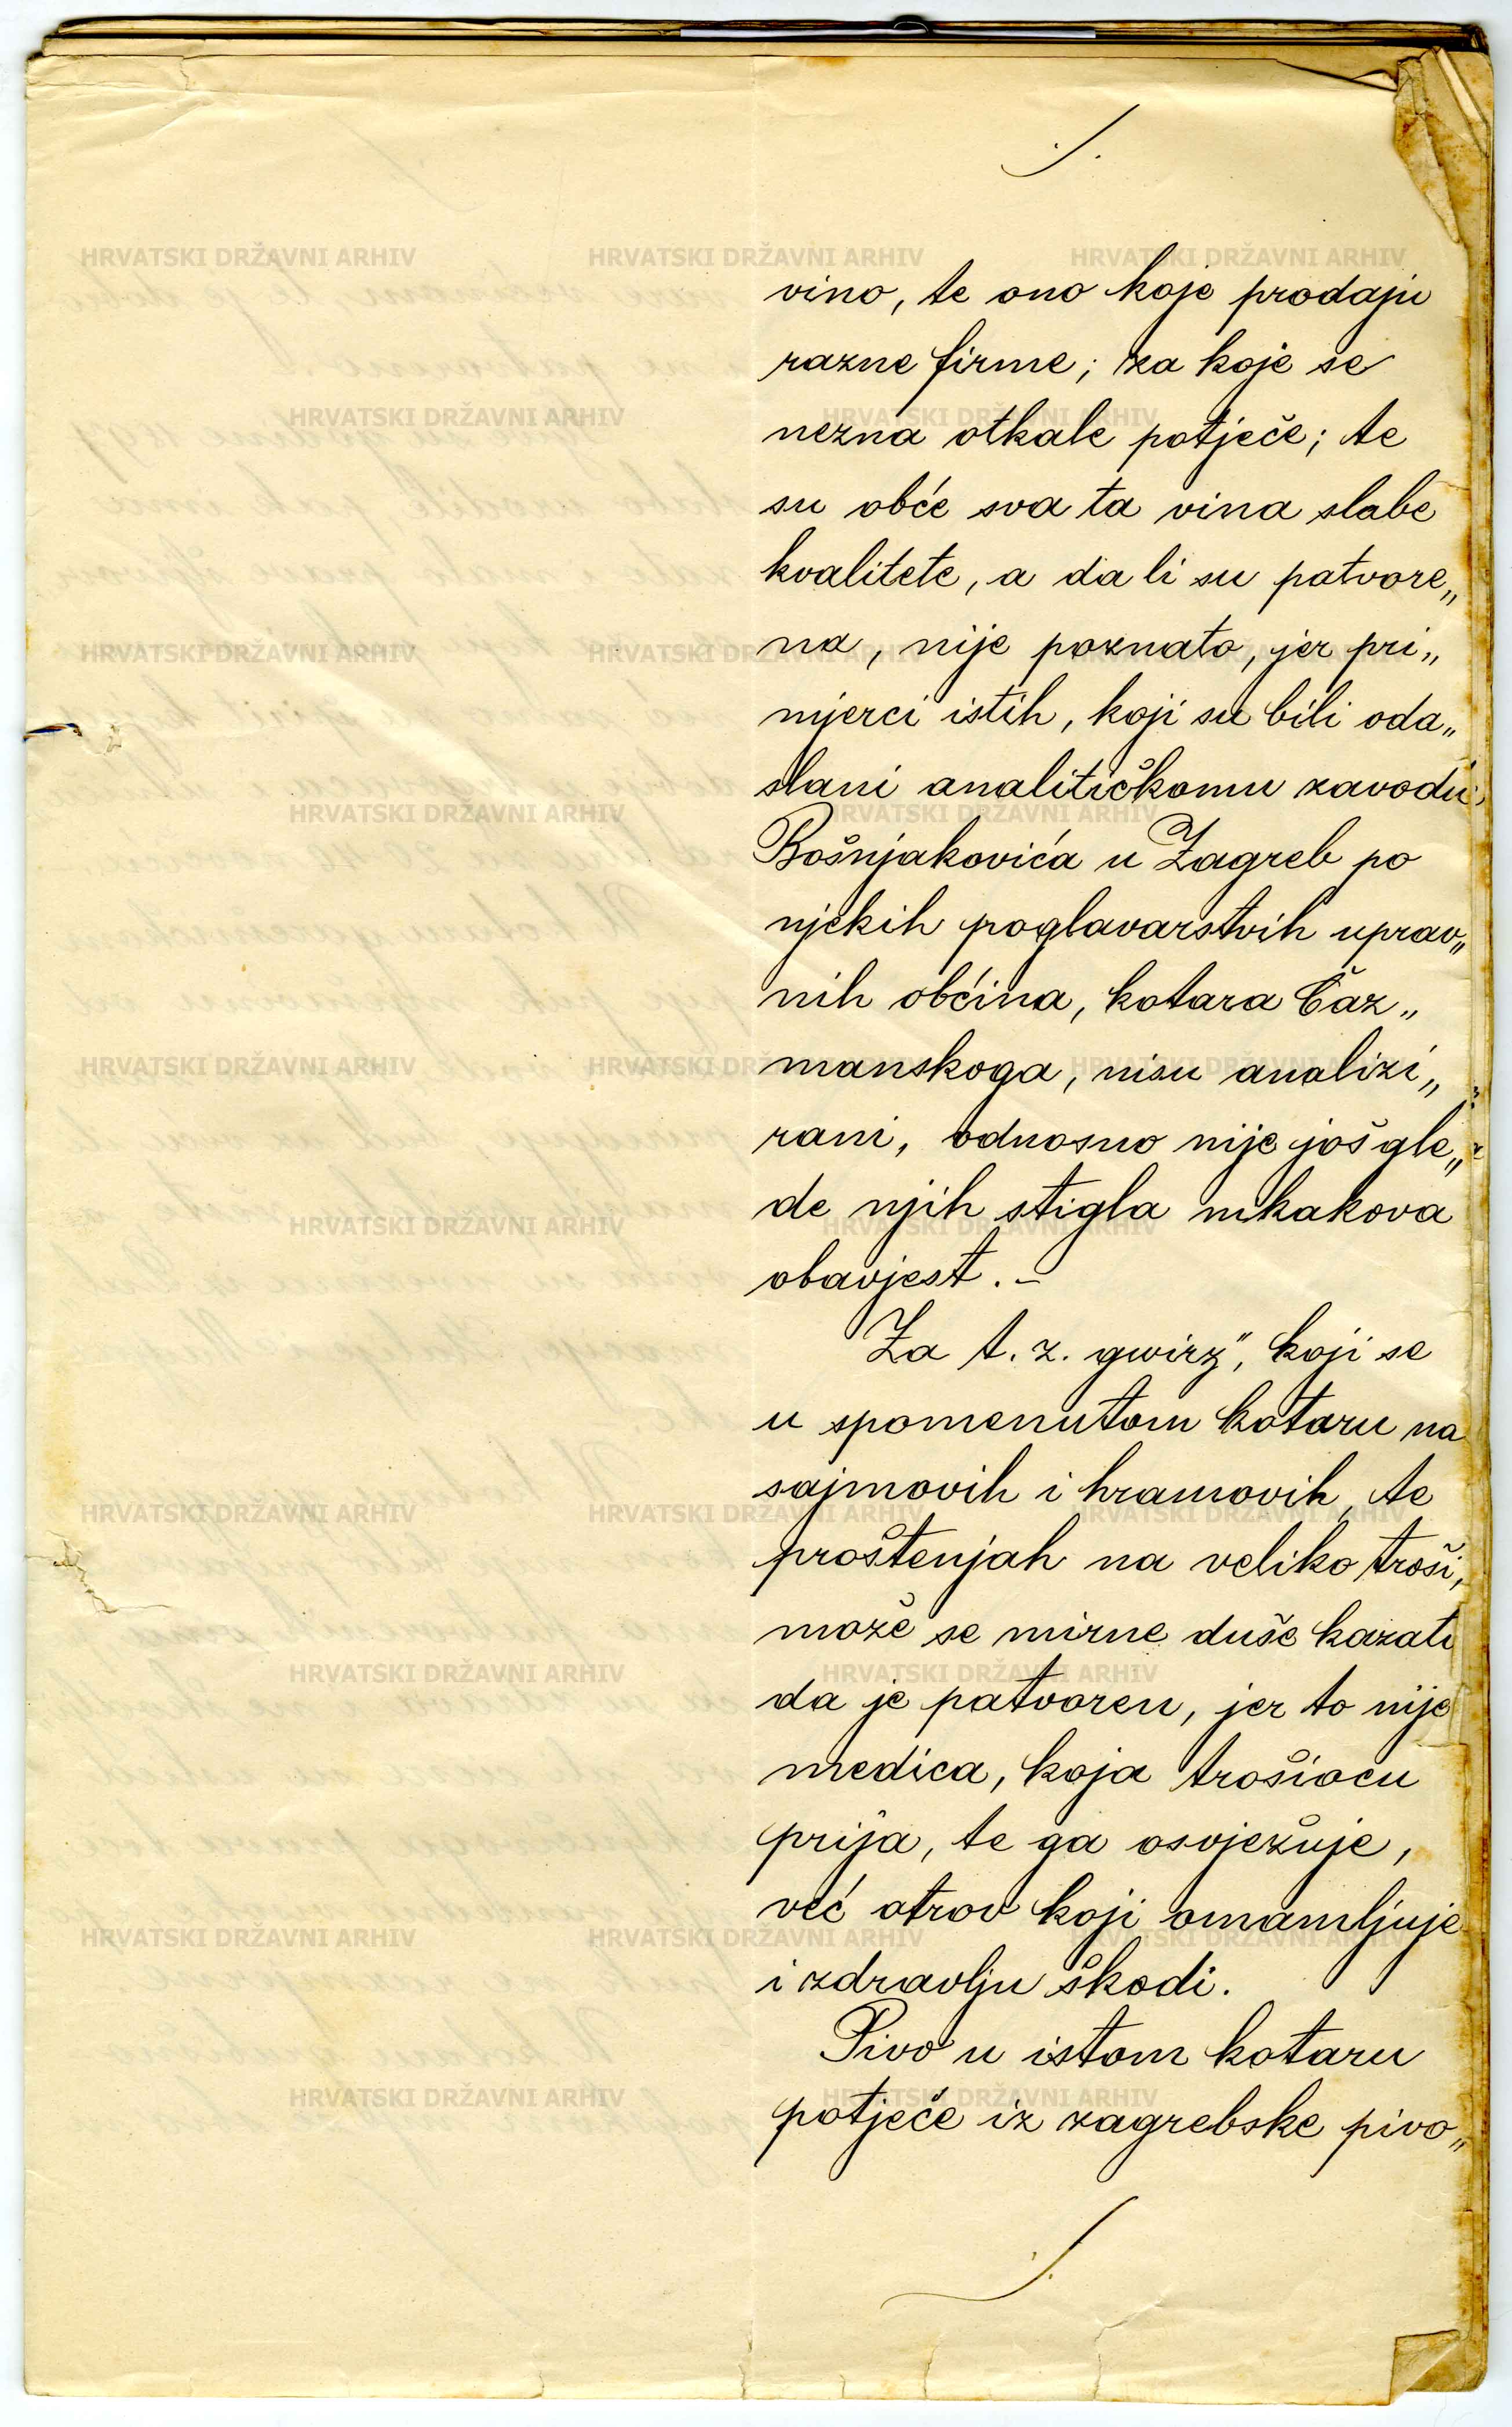 ./.
vino, te ono koje prodaju
razne firme; za koje se
nezna otkale potječe; te
su obće sva ta vina slabe
kvalitete, a da li su patvore„
na, nije poznato, jer pri„
mjerci istih, koji su bili oda„
slani analitičkomu zavodu
Bošnjakovića u Zagreb po
njekih poglavarstvih uprav„
nih obćina, kotara Čaz„
manskoga, nisu analizi„
rani, odnosno nije još gle„
de njih stigla nikakova
obavjest. –
Za t. z. gwirz", koji se
u spomenutom kotaru na
sajmovih i hramovih, te
proštenjah na veliko troši,
može se mirne duše kazati
da je patvoren, jer to nije
medica, koja trošiocu
prija, te ga osvježuje,
već otrov koji omamljuje
i zdravlju škodi.
Pivo u istom kotaru
potječe iz zagrebske pivo„
./.
HRVATSKI DRŽAVNI ARHIV